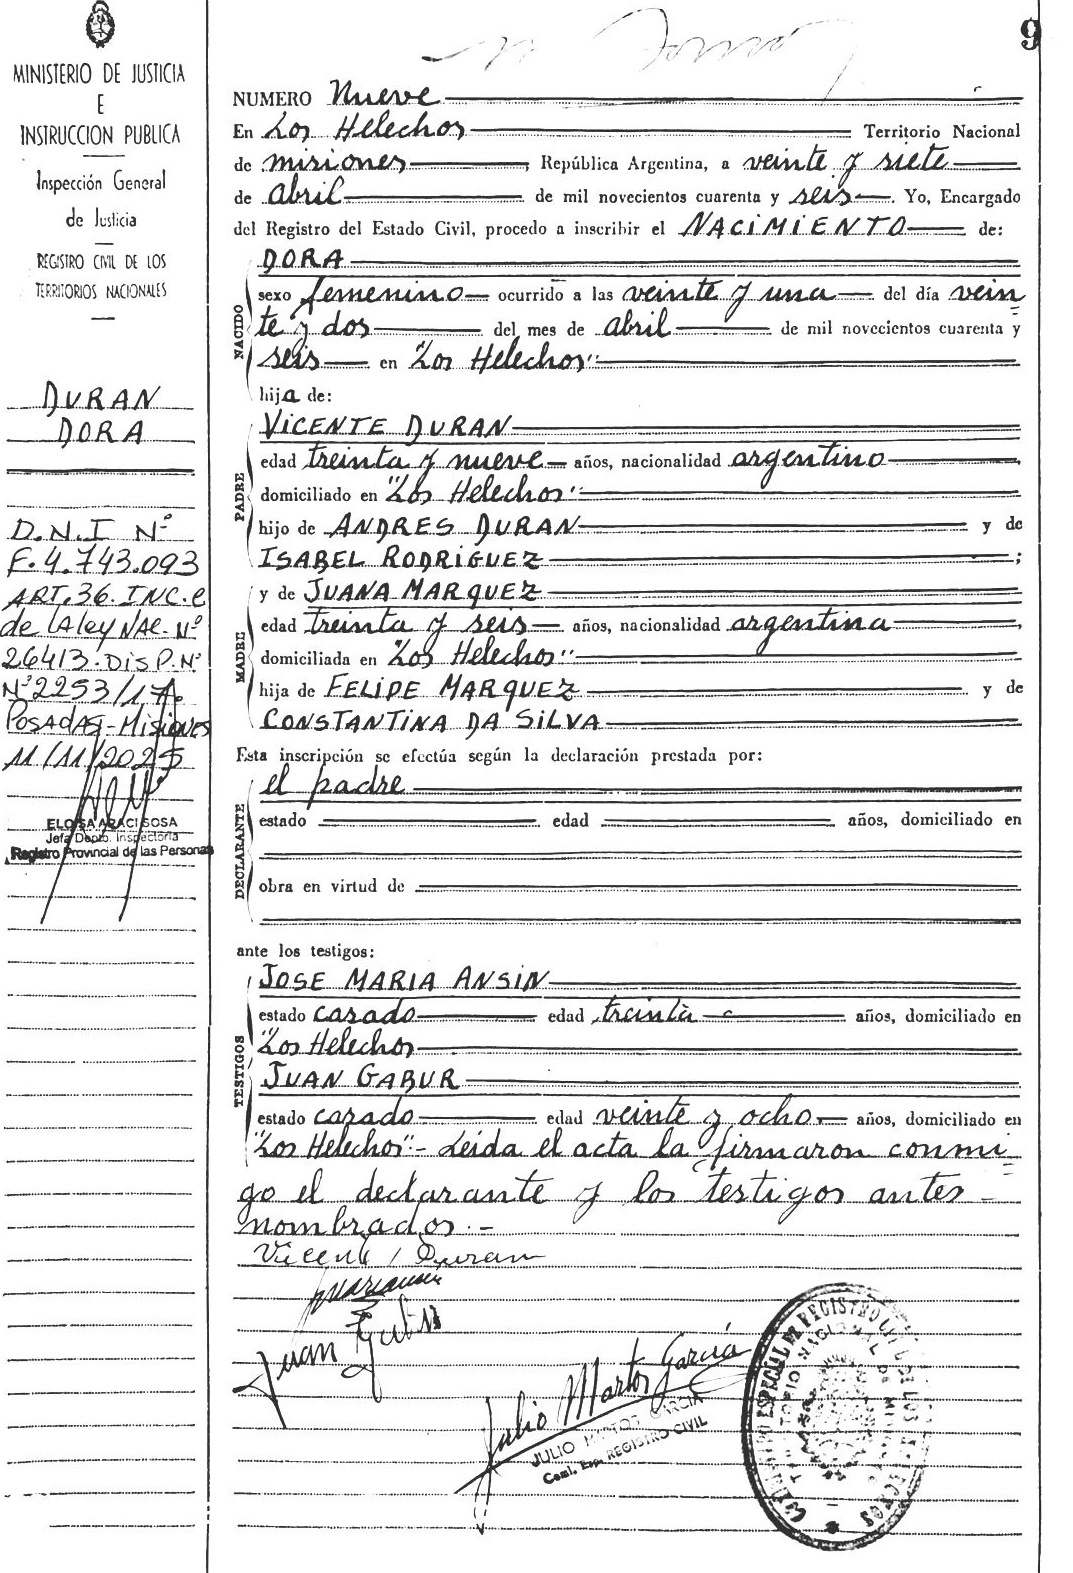 9
MINISTERIO DE JUSTICIA
E
INSTRUCCION PUBLICA
Inspección General
de Justicia
REGISTRO CIVIL DE LOS
TERRITORIOS NACIONALES
DURAN
DORA
D.N.I Nº
F.4.743.093
ART.36.INC.e
de LA ley NAC. Nº
26413.DISP.Nº
Nº2253/17.
POSADAS-MISIONES
11/11/2025
ELOISA ARACI SOSA
Jefa Depto. Inspectoría
Registro Provincial de las Personas
NUMERO Nueve
En Los Helechos Territorio Nacional
de misiones, República Argentina, a veinte y siete
de abril de mil novecientos cuarenta y seis. Yo, Encargado
del Registro del Estado Civil, procedo a inscribir el NACIMIENTO de:
NACIDO
DORA
sexo femenino ocurrido a las veinte y una del día vein
te y dos del mes de abril de mil novecientos cuarenta y
seis en "Los Helechos"
hija de:
PADRE
VICENTE DURAN
edad treinta y nueve años, nacionalidad argentino,
domiciliado en "Los Helechos"
hijo de ANDRES DURAN y de
ISABEL RODRIGUEZ;
MADRE
y de JUANA MARQUEZ
edad treinta y seis años, nacionalidad argentina,
domiciliada en "Los Helechos"
hija de FELIPE MARQUEZ y de
CONSTANTINA DA SILVA
Esta inscripción se efectúa según la declaración prestada por:
DECLARANTE
el padre
estado edad años, domiciliado en
obra en virtud de
ante los testigos:
TESTIGOS
JOSE MARIA ANSIN
estado casado edad treinta años, domiciliado en
"Los Helechos
JUAN GABUR
estado casado edad veinte y ocho años, domiciliado en
"Los Helechos".- Leida el acta la firmaron conmi
go el declarante y los testigos antes
nombrados.-
Vicente Duran
Juan
Julio Martos García
JULIO MARTOS GARCIA
REGISTRO CIVIL